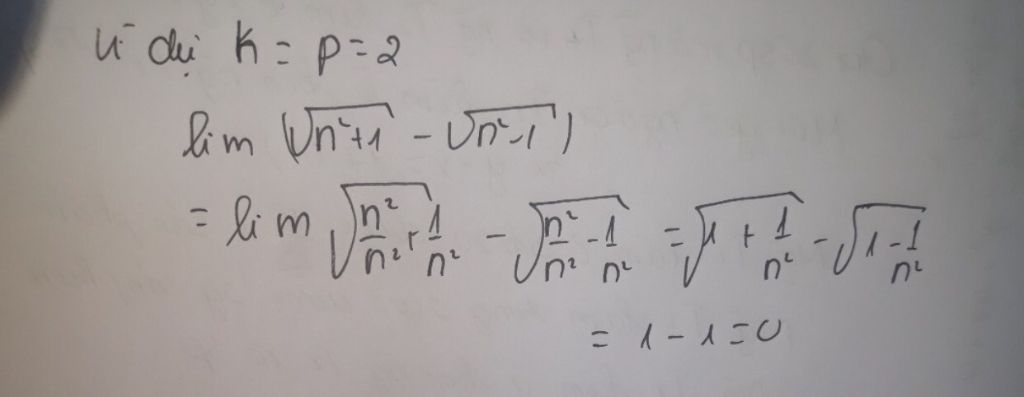 Ví dụ K = p = 2
lim (√(n²+1) - √(n²-1))
= lim √(n²/n² + 1/n²) - √(n²/n² - 1/n²) = √(1 + 1/n²) - √(1 - 1/n²)
= 1 - 1 = 0